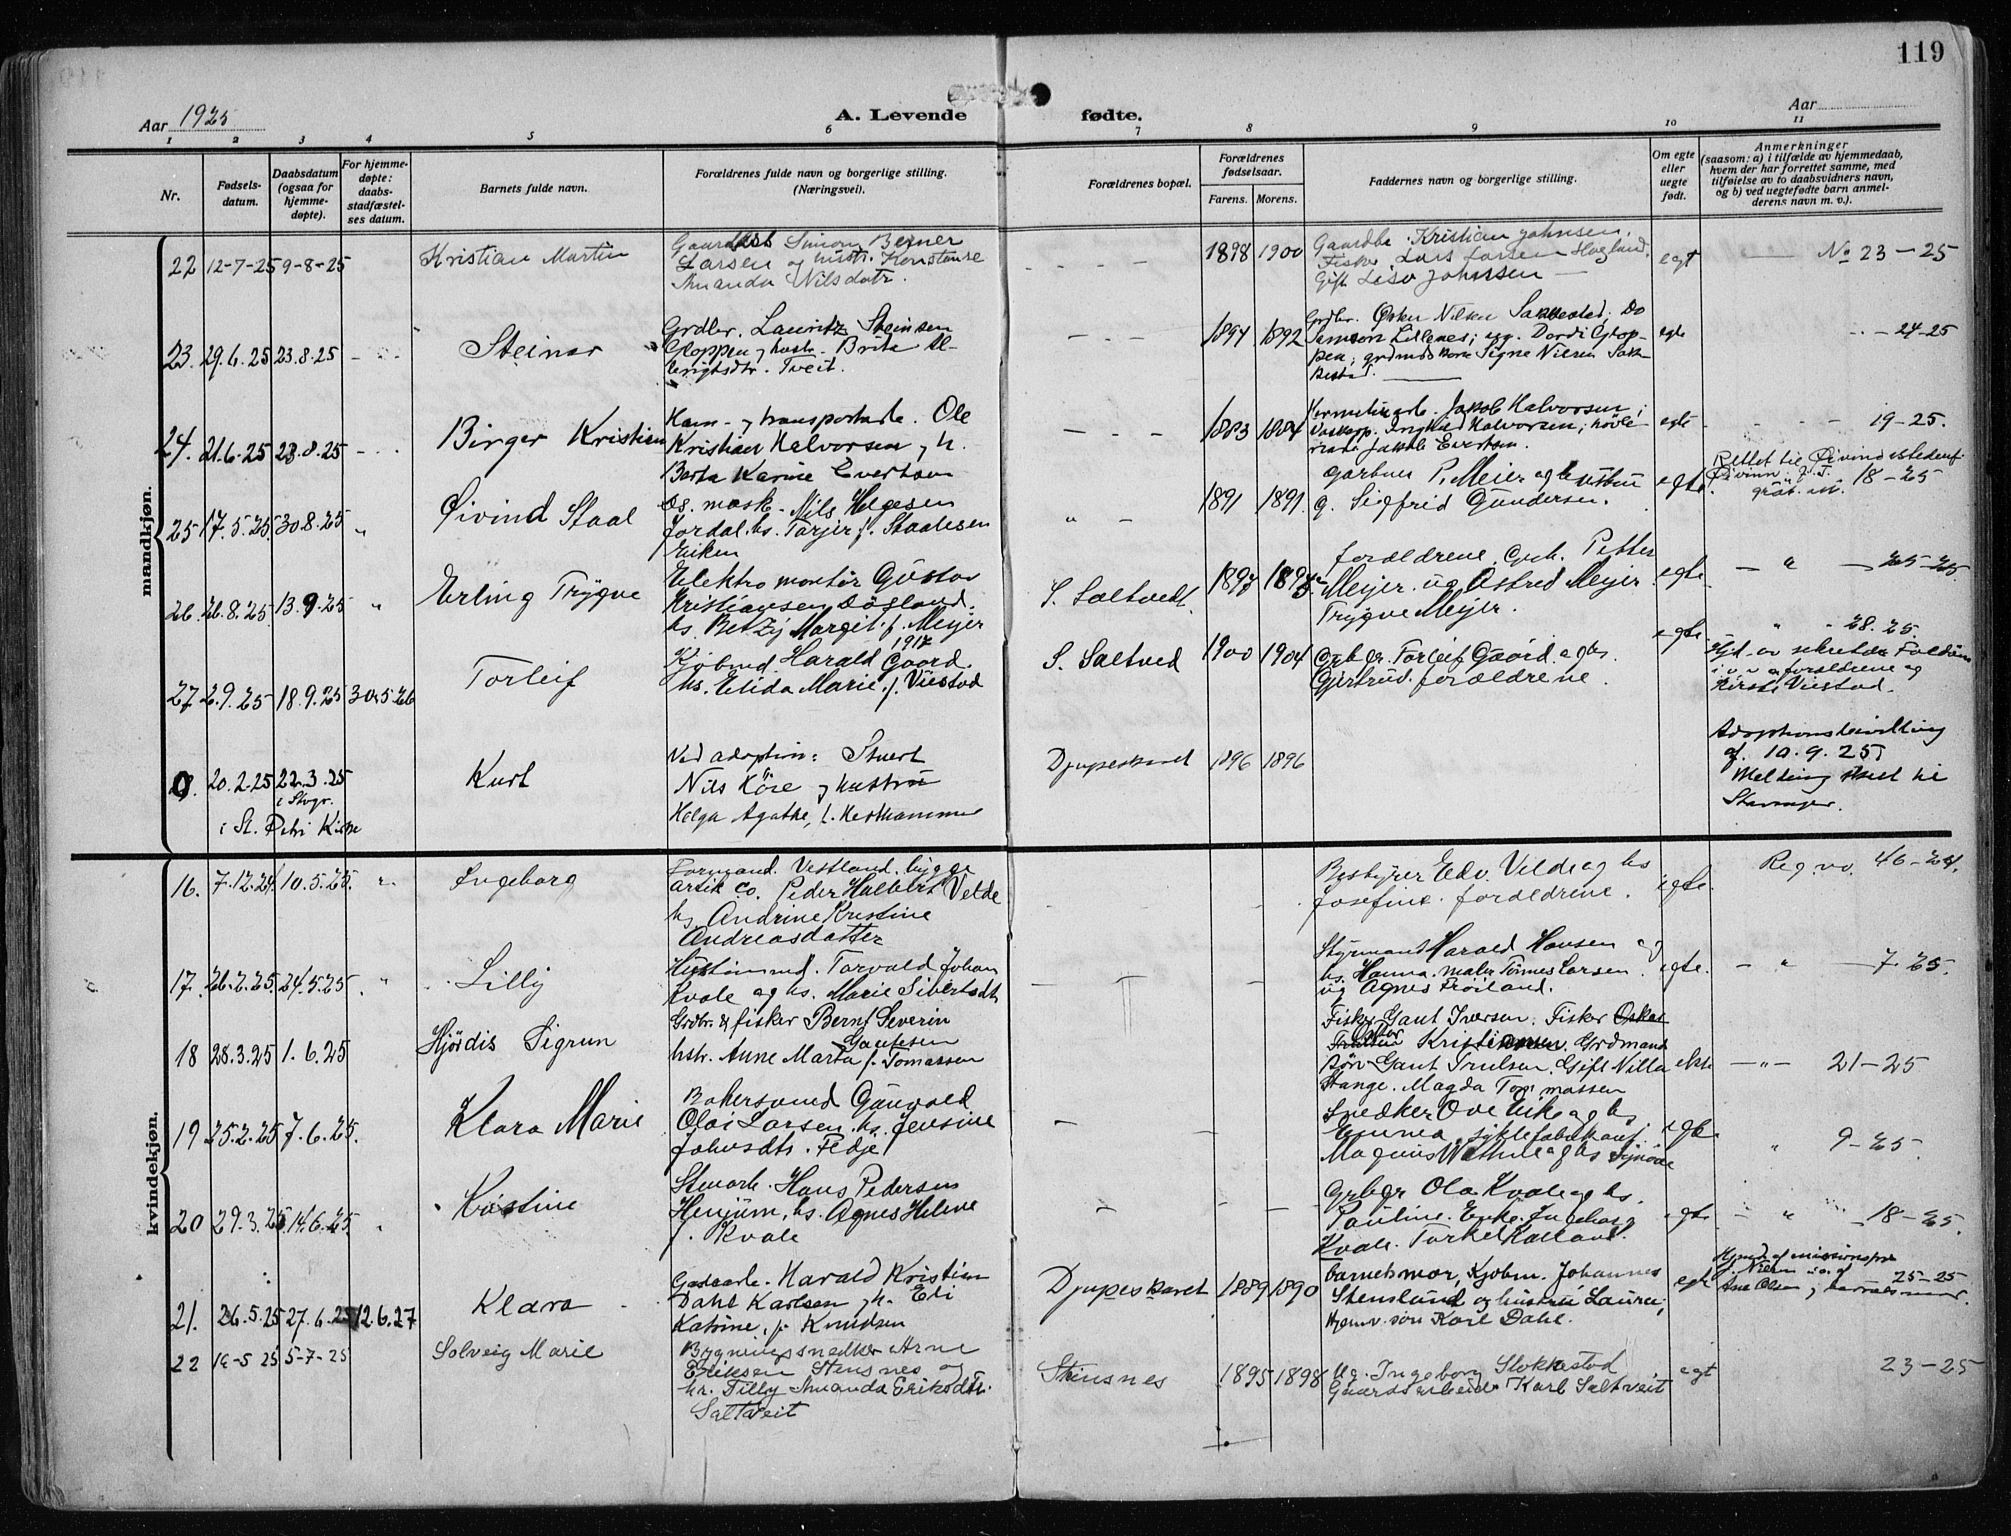 119
Aar 1925
A. Levende fødte.
Aar
1 2 3 4 5 6 7 8 9 10 11
Nr.
Fødsels-
datum.
Daabsdatum
(ogsaa for
hjemme-
døpte).
For hjemme-
døpte:
daabs-
stadfæstel-
ses datum.
Barnets fulde navn.
Forældrenes fulde navn og borgerlige stilling.
(Næringsvei).
Forældrenes bopæl.
Forældrenes
fødselsaar.
Farens. Morens.
Faddernes navn og borgerlige stilling.
Om egte
eller
uegte
født.
Anmerkninger
(saasom: a) i tilfælde av hjemmedaab,
hvem der har forrettet samme, med
tilføielse av to daabsvidners navn,
og b) ved uegtefødte barn anmel-
derens navn m. v.).
mandkjøn.
22 12-7-25 9-8-25
Kristian Martin
Simon Berner
Larsen og hustr. Konstanse
Amanda Nilsdatr.
1898 1900
Gaardbr. Kristian Johnsen,
Fisker Lars Larsen Hogland.
Gift Lisa Johnsen
egt
No 23-25
23. 29.6.25 23.8.25
Steinar
Grdbr. Lauritz Steinsen
Gloppen og hustr. Brita
Tveit.
1894 1892
Grdbr. Nilsen Sakkestad; Do
Samson Lillenes; ug. Dordi Glop-
pen; Signe Nilsen Sak-
kestad.
egte
24-25
24. 21.6.25 23.8.25
Birger Kristian
Ham- og transportarb. Ole
Kristian Halvorsen og h.
Berta Karine Evertsen
1883 1884
Jakob Halvorsen;
Ingrid Halvorsen; høvle-
Jakob Evertsen.
egte
19-25.
25 17.5.25 30.8.25 "
Øivind Staal
mask. Nils Helgesen
Jordal. hs. Tarjer f. Staalesen
Eiken
" -
1891 1891
Garbner P. Meier og hustru
g. Sigfrid Gundersen.
egte.
Rettet til Øivind istedenf.
Øivinn.
18-25
26. 26.8.25 13.9.25 "
Erling Trygve
Elektromontør Gustav
Kristiansen Døsland.
hs. Betzy Margit f. Meyer
S. Saltvedt.
forældrene, Petter
Meyer og Astrid Meyer
Trygve Meyer.
egte
" 25-25
27 2.9.25 18.9.25 30.5.26
Torleif
1917
Kjøbmd Harald Gaard.
hs. Elida Marie f. Viestad
S. Saltved
1900 1904
Torleif Gaard og hs.
Gjertrud. forældrene.
egte
" 28.25.
Hjd. av
forældrene og
Kirsti Viestad.
20.2.25 22.3.25
i Stvgr.
i St. Petri Kirke
Kurt
Ved adoption: Stuert
Nils Kåre og hustru
Helga Agathe, f. Mesthammer
Djupeskaret
1896 1896
Adoptionsbevilling
af 10.9.25
Melding sendt til
Stavanger.
kvindekjøn.
16. 7.12.24. 10.5.25. "
Ingeborg
Formand. Vestland. bygge
artik co. Peder Halbert Velde
hs Andrine Kristine
Andreasdatter
Bestyrer Edv. Velde og hs
Josefine. forældrene.
egte.
Reg. no. 46-24.
17. 26.2.25. 24.5.25. "
Lilly
Torvald Johan
Kvale og hs. Marie Sivertsdt.
Styrmand Harald Hansen og
hs. Hanna. maler Tønnes Larsen.
ug Agnes Frøiland.
egte.
- " - 7-25.
18 28.3.25 1.6.25
Hjørdis Sigrun
Grdbr. & fisker Bernt Severin
Gautesen
hstr. Anne Marta f. Tomassen
Fisker Gaut Iversen. Fisker Oskar
Kristiansen, Grdmand
Gaut Truelsen, Gift Villa
Stange. Magda Tommassen
ekte
- " - 21-25
19 25.2.25 7.6.25.
Klara Marie
Bakersvend Gunvald
Olai Larsen. hs. Jensine
Johnsdtr. Fedje
Snedker Ove Eike og hs
Emma. syklefabrikant
Magnus Wathne og hs Synøve
egte
" 9-25.
20 29.3.25 14.6.25 "
Kristine
Stenarb. Hans Pedersen
Henjum. hs. Agnes Helene
f. Kvale
Grbgr Ola Kvale og hs.
Pauline. Enke. Ingeborg
Kvale. Torkel Kalland.
egte
- " - 18-25.
21. 26.5.25 27.6.25 12.6.27
Klara
Gasarb. Harald Kristian
Dahl Karlsen og h. Edi
Katrine, f. Knudsen
Djupeskaret
1889 1890
barnets mor, Kjøbm. Johannes
Stenslund og hustru Laura;
Hjemv. søn Karl Dahl.
egte
Hjmd af missionspr.
J. Nilsen
25-25
Ane Olsen og barnets mor.
22 5-7-25
Solveig Marie
Bygningssnedker Arne
Eriksen Stensnes og
hr. Tilly Amanda Eriksdtr.
Saltveit
Stensnes
1895 1898
Ug. Ingeborg Stokkestad
Gaardsarbeider Karl Saltveit
egt
23-25